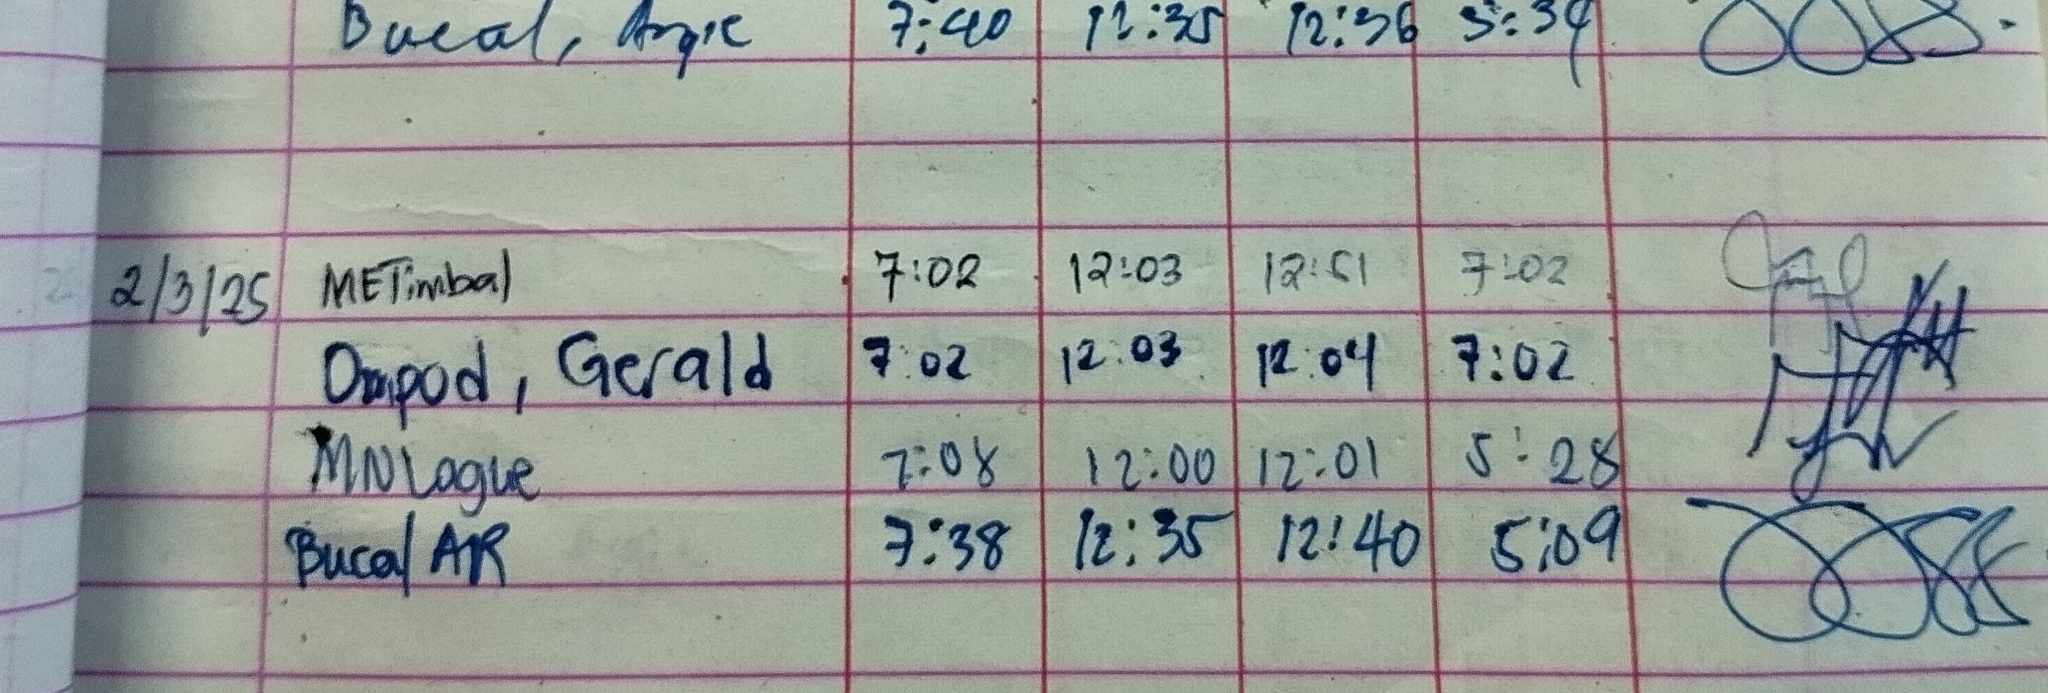 Bucal, Angie 7:40 12:35 12:36 5:34
2/3/25 METimbal 7:02 12:03 12:51 7:02
Gerald 7:02 12:03 12:04 7:02
MNLague 7:08 12:00 12:01 5:28
Bucal AR 7:38 12:35 12:40 5:09